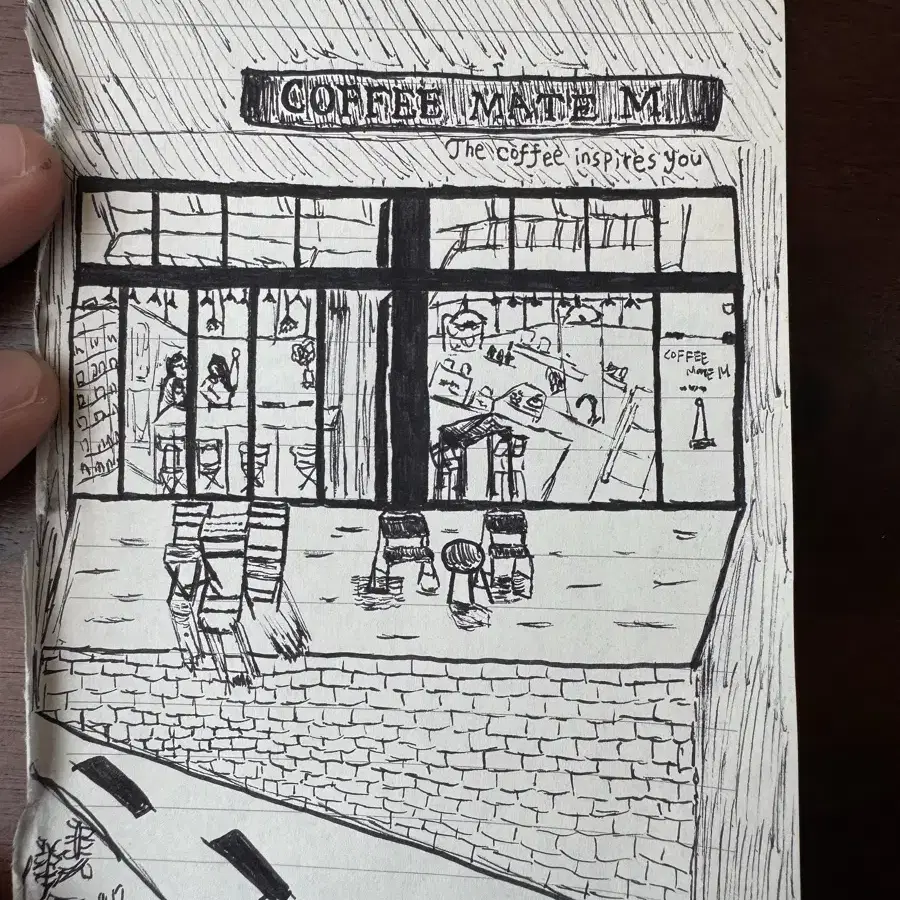 COFFEE MATE M
The coffee inspires you
COFFEE
MATE M